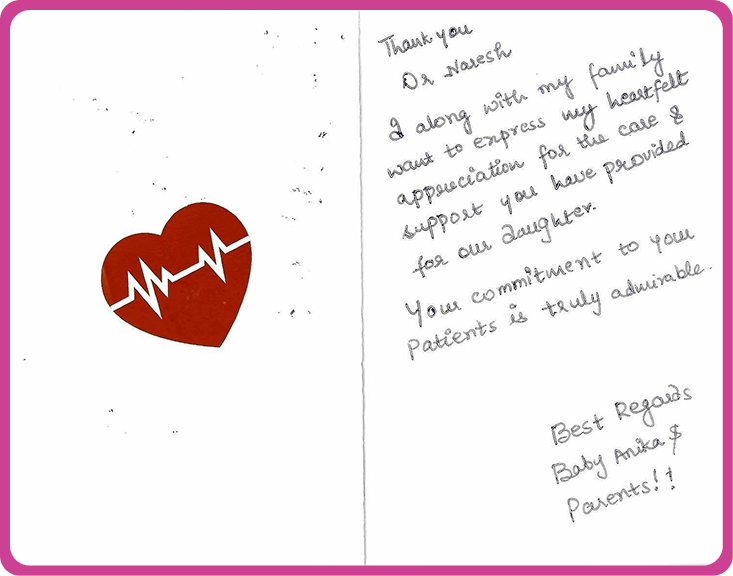 Thank you
Dr Naresh
I along with my family
want to express my heartfelt
appreciation for the care &
support you have provided
for our daughter.
Your commitment to your
Patients is truly admirable.
Best Regards
Baby Anika &
Parents!!